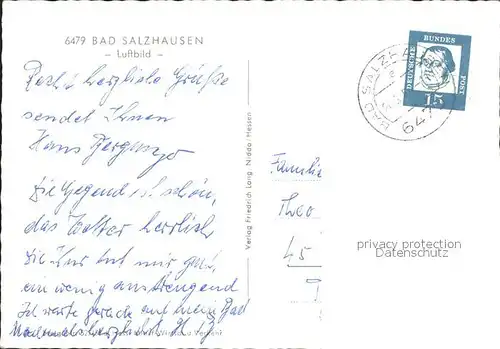 6479 BAD SALZHAUSEN
– Luftbild –
Recht herzliche Grüße
sendet Ihnen
Hans
Die Gegend ist schön,
das Wetter herrlich,
die Kur tut mir gut,
ein wenig anstrengend
Ich warte gerade auf mein Bad
Verlag Friedrich Lang, Nidda Hessen
DEUTSCHE
BUNDES
POST
15
BAD SALZHA
647
Familie
Theo
45
privacy protection
Datenschutz